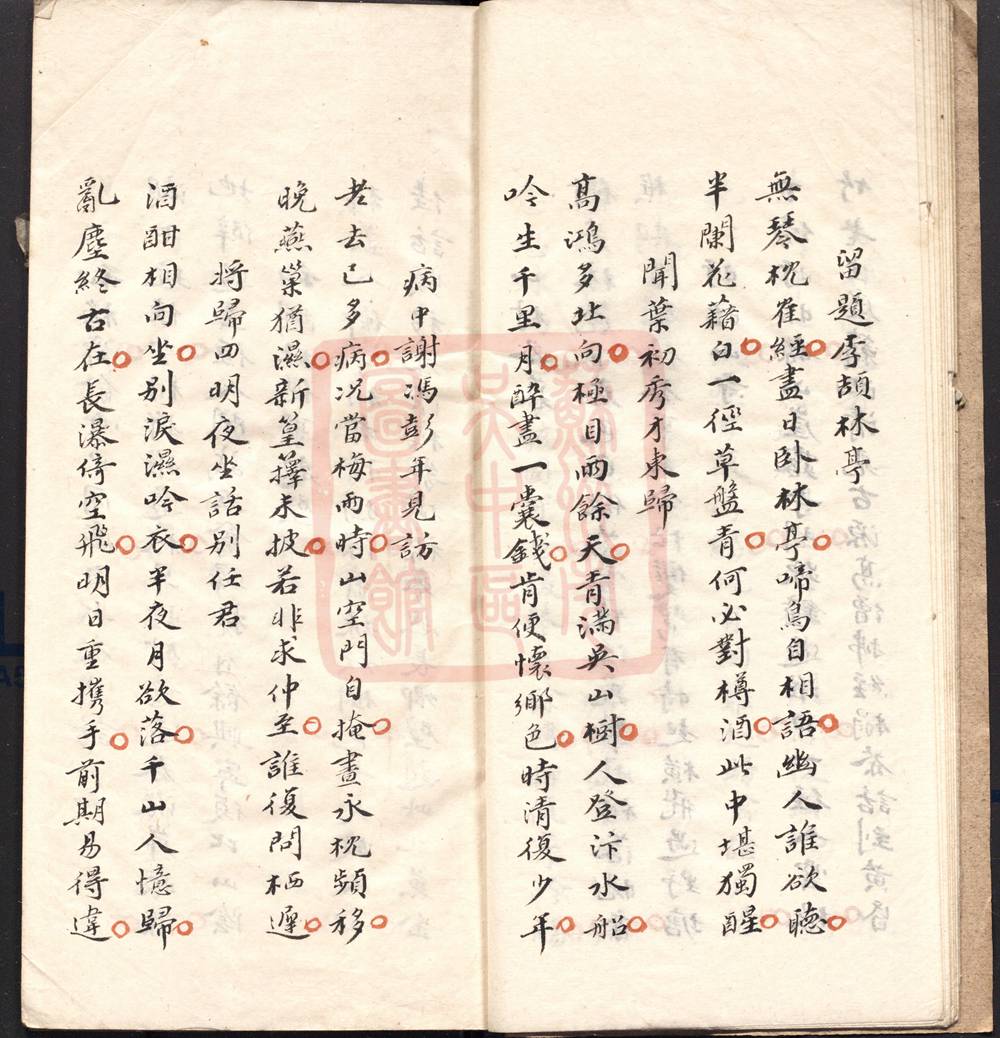 留題李頡林亭
無琴枕雀經盡日卧林亭啼鳥自相語幽人誰欲聴
半闌花藉白一徑草盤青何必對樽酒此中堪獨醒
聞葉初秀才東歸
高鴻多北向極目雨餘天青滿吳山樹人登汴水船
吟生千里月醉盡一囊錢肯便懷鄉色時清復少年
病中謝馮彭年見訪
老去已多病况當梅雨時山空門自掩晝永枕頻移
晚燕巢猶濕新篁籜未披若非求仲至誰復問栖遲
將歸四明夜坐話別任君
酒酣相向坐別淚濕吟衣半夜月欲落千山人憶歸
亂塵終古在長瀑倚空飛明日重携手前期易得違
蘇州市
吴中區
圖書館